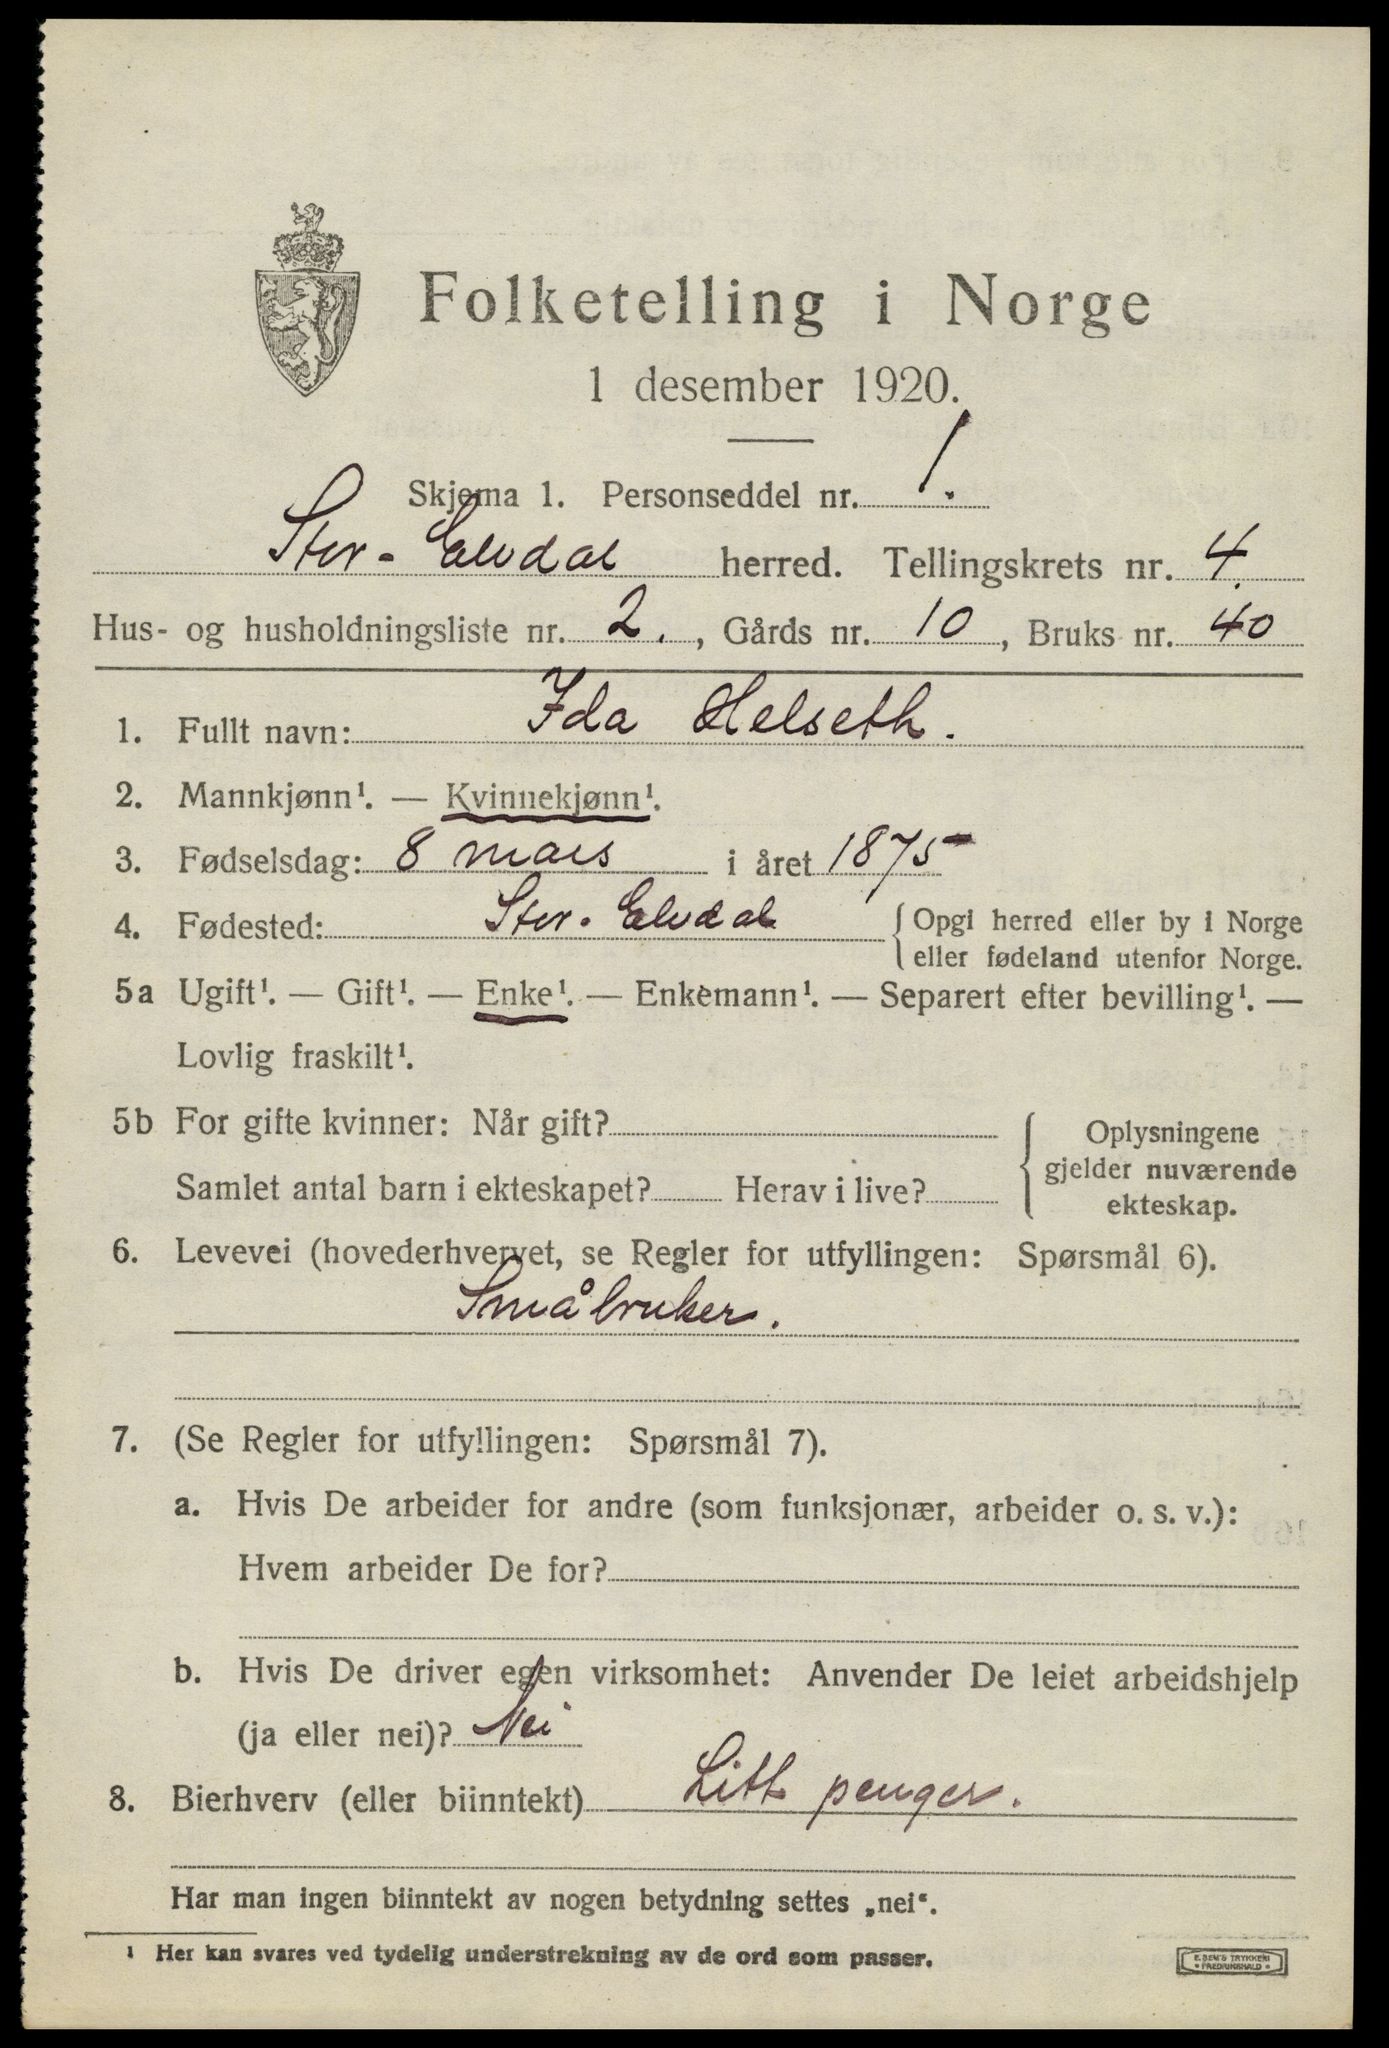 Folketelling i Norge
1 desember 1920.
Skjema 1. Personseddel nr. 1.
Stor-Elvdal herred. Tellingskrets nr. 4.
Hus- og husholdningsliste nr. 2., Gårds nr. 10, Bruks nr. 40
1. Fullt navn: Ida Helseth.
2. Mannkjønn¹. — Kvinnekjønn¹.
3. Fødselsdag: 8 mars i året 1875
4. Fødested: Stor-Elvdal { Opgi herred eller by i Norge
eller fødeland utenfor Norge.
5a Ugift¹. — Gift¹. — Enke¹. — Enkemann¹. — Separert efter bevilling¹. —
Lovlig fraskilt¹.
5b For gifte kvinner: Når gift?
Samlet antal barn i ekteskapet? Herav i live?
Oplysningene
gjelder nuværende
ekteskap.
6. Levevei (hovederhvervet, se Regler for utfyllingen: Spørsmål 6).
Småbruker.
7. (Se Regler for utfyllingen: Spørsmål 7).
a. Hvis De arbeider for andre (som funksjonær, arbeider o. s. v.):
Hvem arbeider De for?
b. Hvis De driver egen virksomhet: Anvender De leiet arbeidshjelp
(ja eller nei)? Nei
8. Bierhverv (eller biinntekt) Litt penger.
Har man ingen biinntekt av nogen betydning settes „nei“.
¹ Her kan svares ved tydelig understrekning av de ord som passer.
E. SEM'S TRYKKERI
FREDRIKSHALD